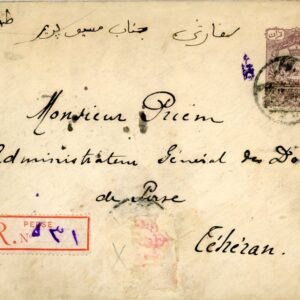 سفارشی جناب مسیو پریم
Monsieur Priem
Administrateur Général des Do
de Perse
Téhéran.
PERSE
R. No ۵۳۱